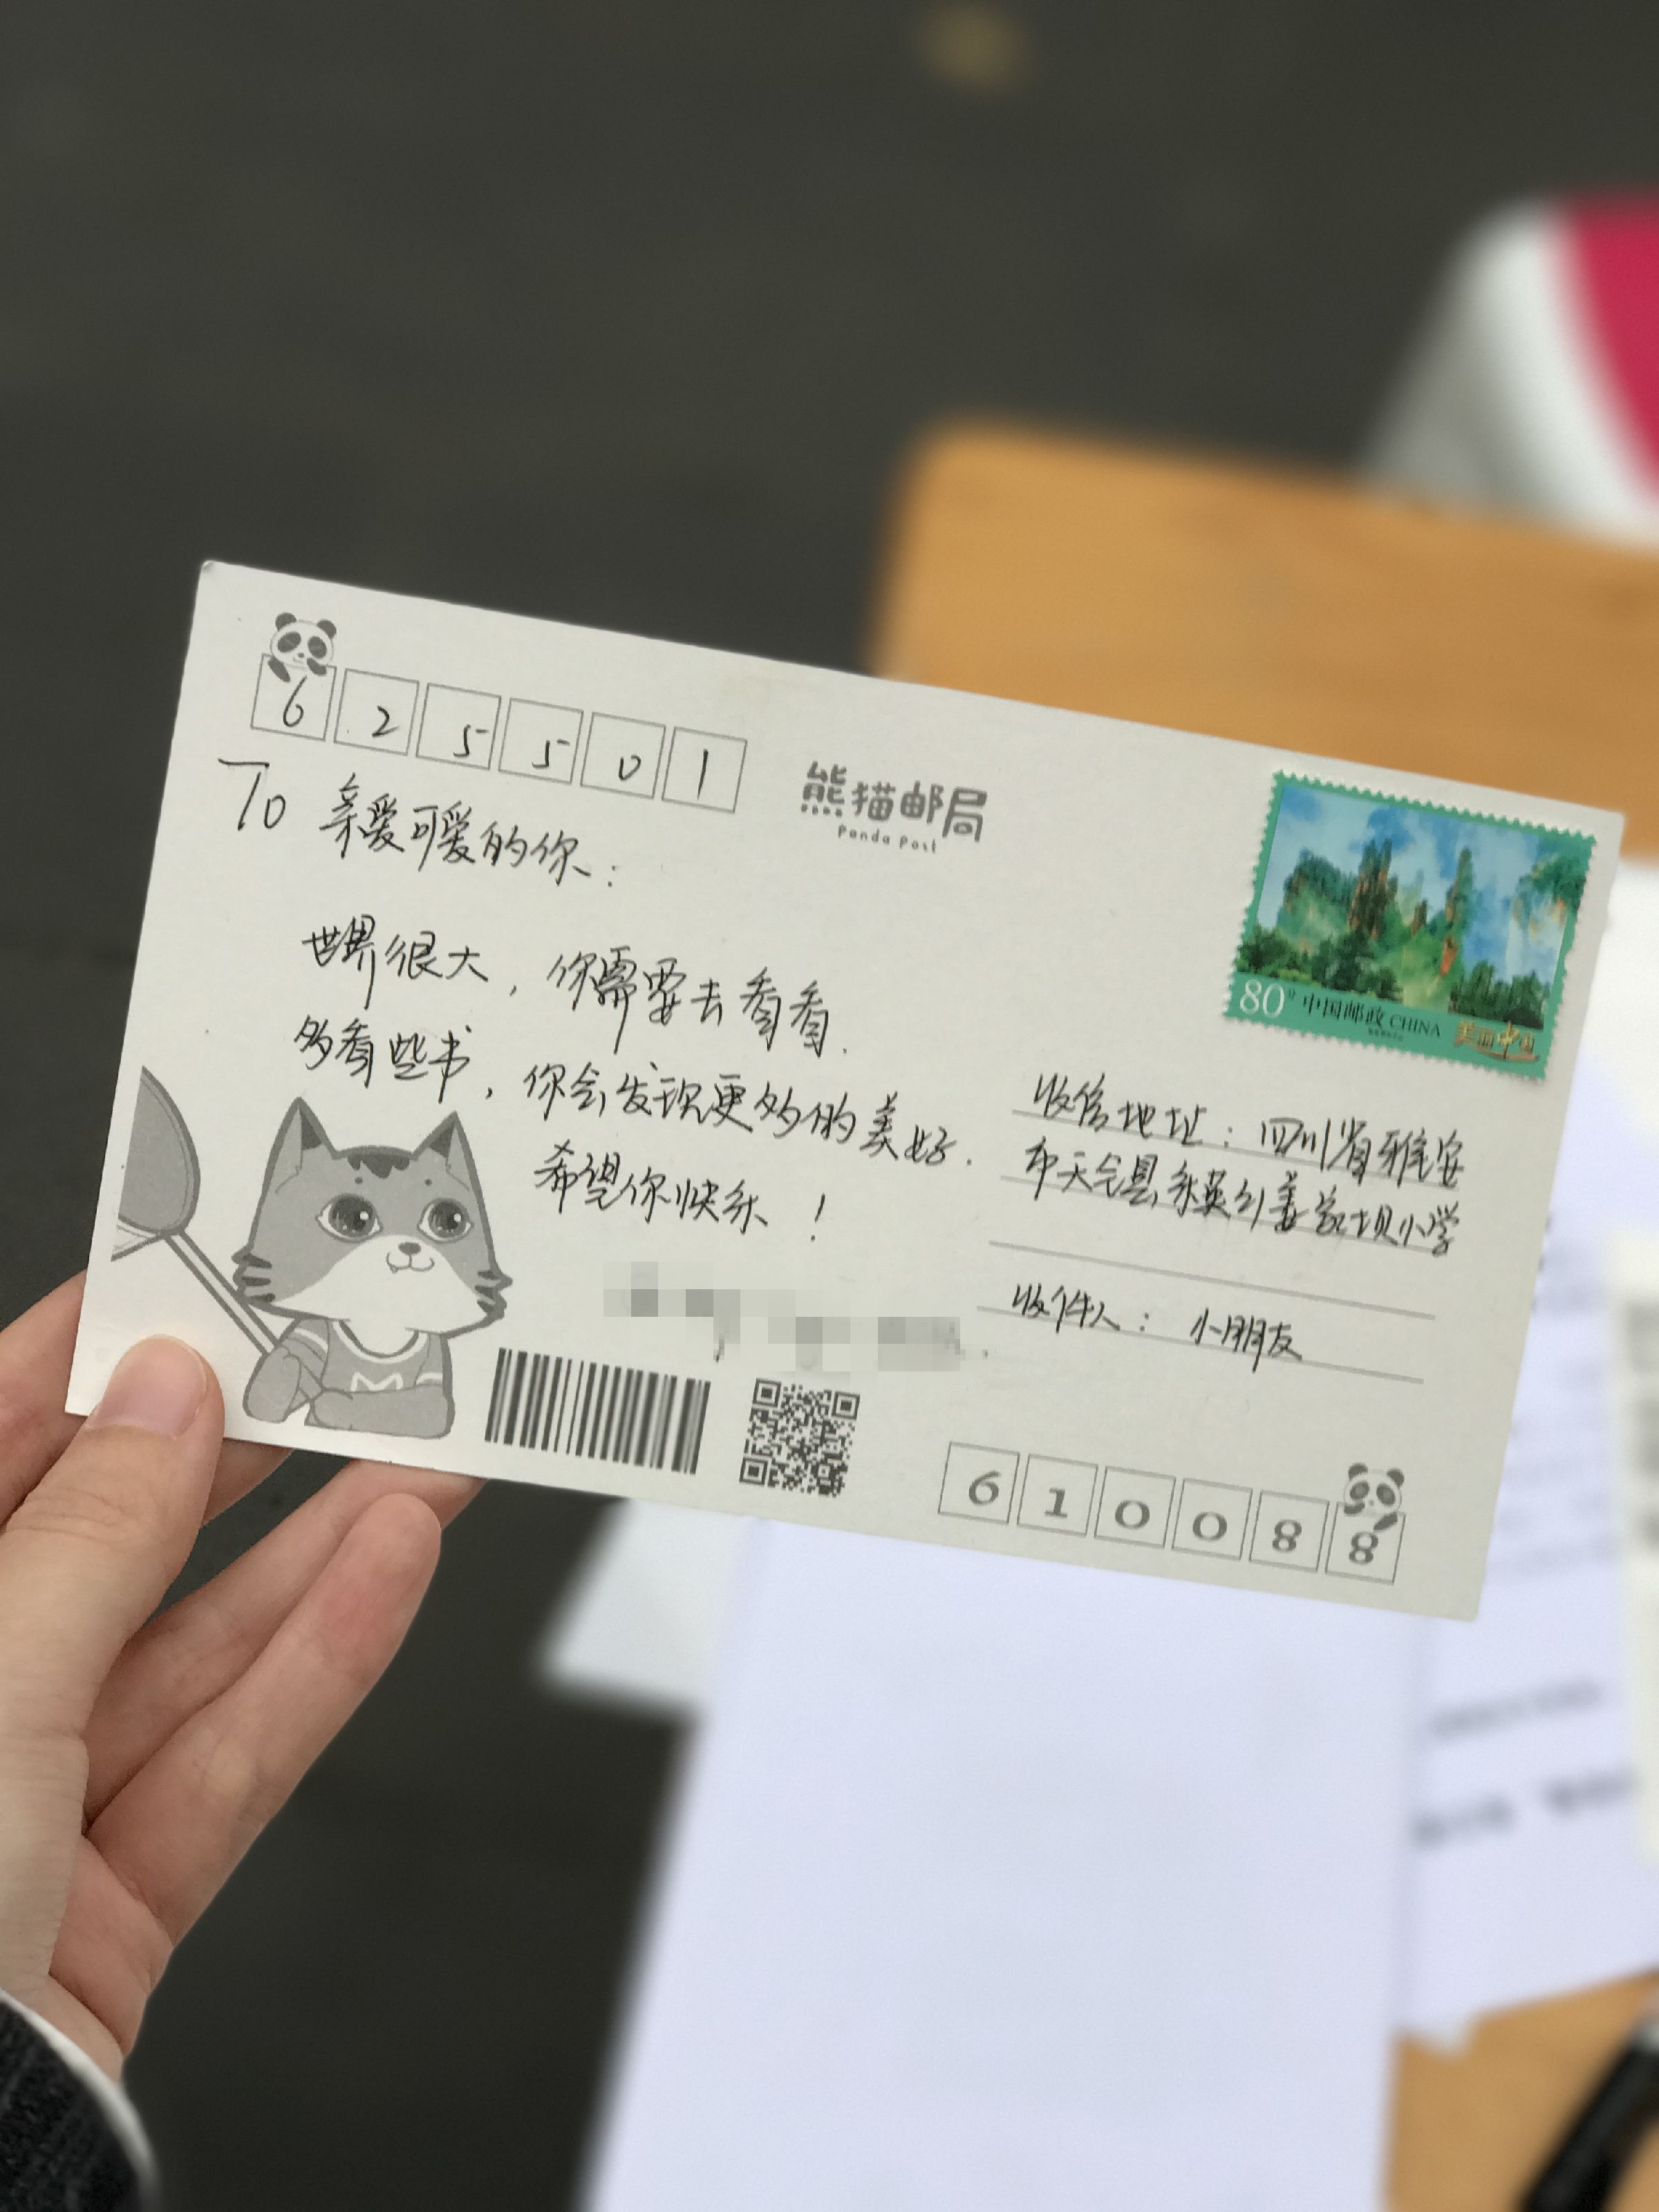 625501
熊猫邮局
Panda Post
To 亲爱可爱的你：
世界很大，你需要去看看.
多看些书，你会发现更多的美好.
希望你快乐！
80分 中国邮政 CHINA
美丽中国
收信地址：四川省雅安
市天全县乡英乡姜家坝小学
收件人：小朋友
610088